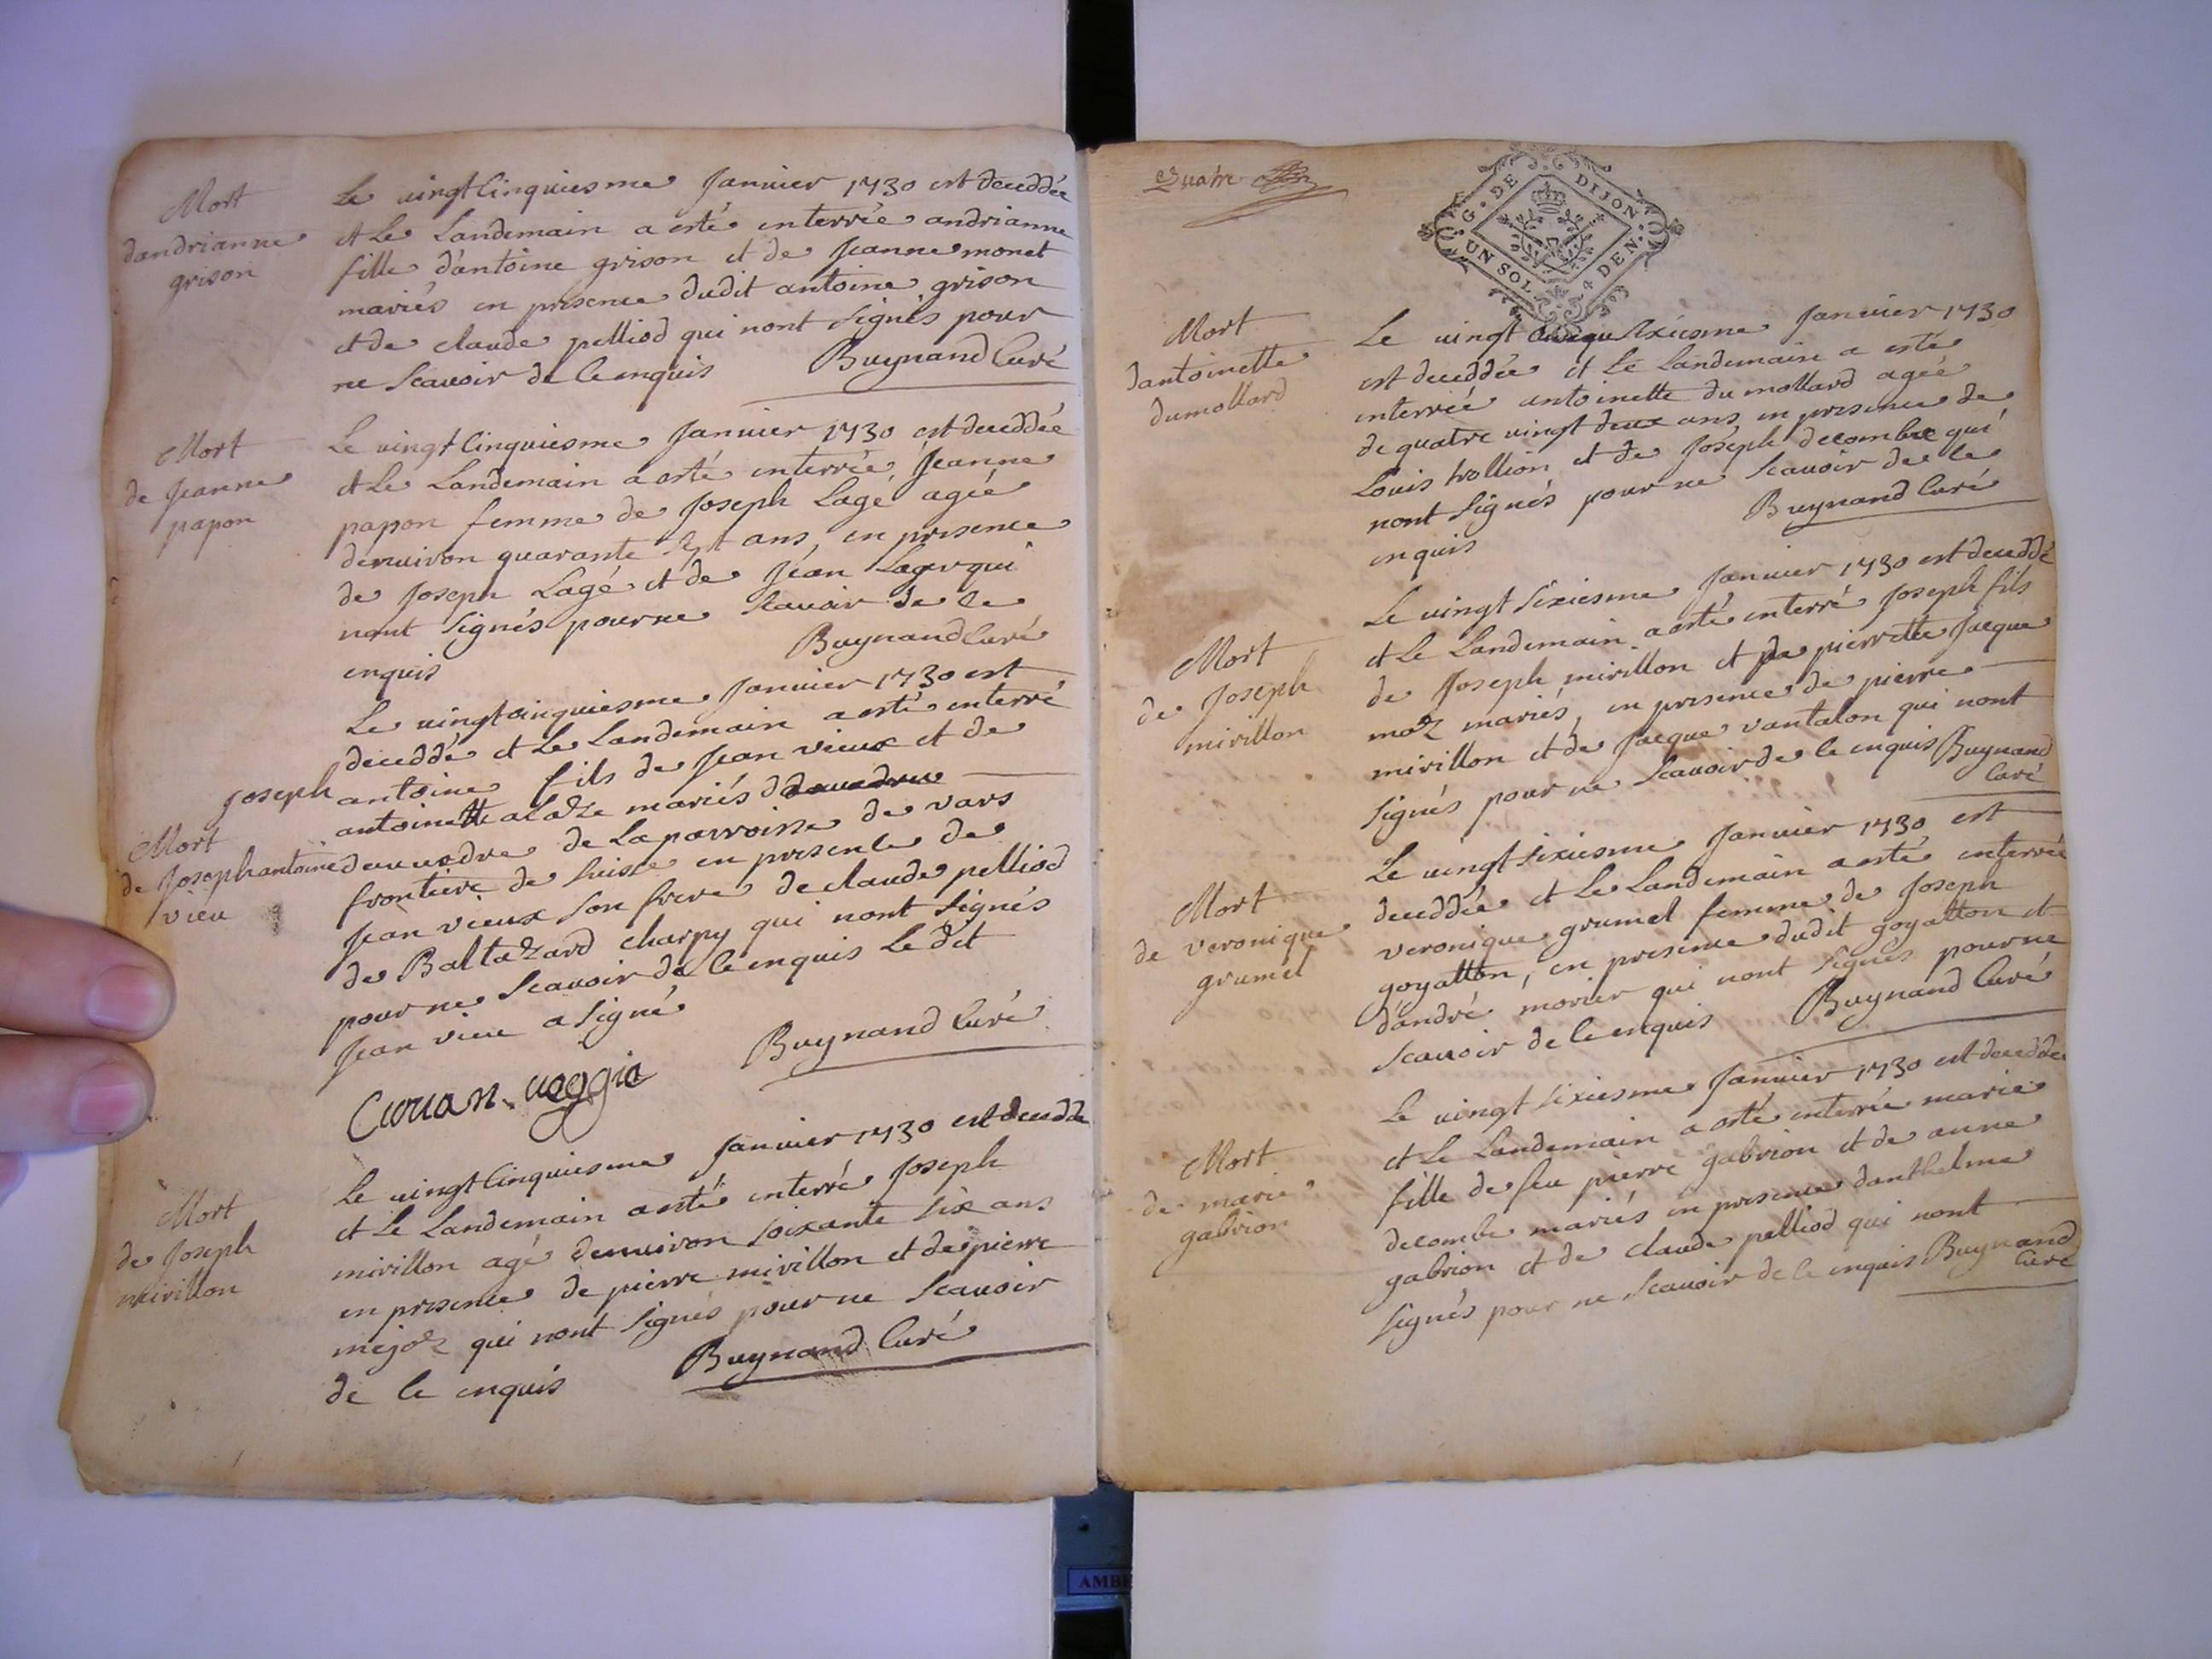 Mort
dandrianne
grison
Le vingtcinquiesme Janvier 1730 est deceddée
et Le Landemain a esté interrée andrianne
fille d'antoine grison et de Jeanne monet
mariés en presence dudit antoine grison
et de claude pelliod qui nont signés pour
ne scavoir de ce enquis Buynand Curé
Mort
de Jeanne
papon
Le vingtcinquiesme Janvier 1730 est deceddée
et Le Landemain a esté interrée Jeanne
papon femme de Joseph Lagé agée
denviron quarante sept ans, en presence
de Joseph Lagé et de Jean Lager qui
nont signés pour ne scavoir de ce
enquis Buynand Curé
Mort
de Joseph antoine
vieu
Le vingtcinquiesme Janvier 1730 est
deceddé et Le Landemain a esté interré
Joseph antoine fils de Jean vieux et de
antoinette alaze mariés
de La parroisse de vars
frontiere de suisse en presence de
Jean vieux son frere de claude pelliod
de Baltazard charpy qui nont signés
pour ne scavoir de ce enquis Le dit
Jean vieu a signé
Buynand Curé
Mort
de Joseph
mirillon
Le vingtcinquiesme Janvier 1730 est deceddé
et Le Landemain a esté interré Joseph
mirillon agé denviron soixante six ans
en presence de pierre mirillon et de pierre
mejoz qui nont signés pour ne scavoir
de ce enquis Buynand Curé
quatre
G. DE DIJON
UN SOL 4 DEN.
Mort
dantoinette
dumollard
Le vingt sixiesme Janvier 1730
est deceddée et Le Landemain a esté
interrée antoinette du mollard agée
de quatre vingt deux ans en presence de
Louis trollion et de Joseph decombe qui
nont signés pour ne scavoir de ce
enquis Buynand Curé
Mort
de Joseph
mirillon
Le vingt sixiesme Janvier 1730 est deceddé
et Le Landemain a esté interré Joseph fils
de Joseph mirillon et de pierrette Jacque
moz mariés, en presence de pierre
mirillon et de Jacque vantalon qui nont
signés pour ne scavoir de ce enquis Buynand
Curé
Mort
de veronique
grumel
Le vingt sixiesme Janvier 1730 est
deceddée et Le Landemain a esté interrée
veronique grumel femme de Joseph
goyatton, en presence dudit goyatton et
d'andré morier qui nont signés pour ne
scavoir de ce enquis Buynand Curé
Mort
de marie
gabrion
Le vingt sixiesme Janvier 1730 est deceddée
et Le Landemain a esté interrée marie
fille de feu pierre gabrion et de anne
decombe mariés en presence danthelme
gabrion et de claude pelliod qui nont
signés pour ne scavoir de ce enquis Buynand
Curé